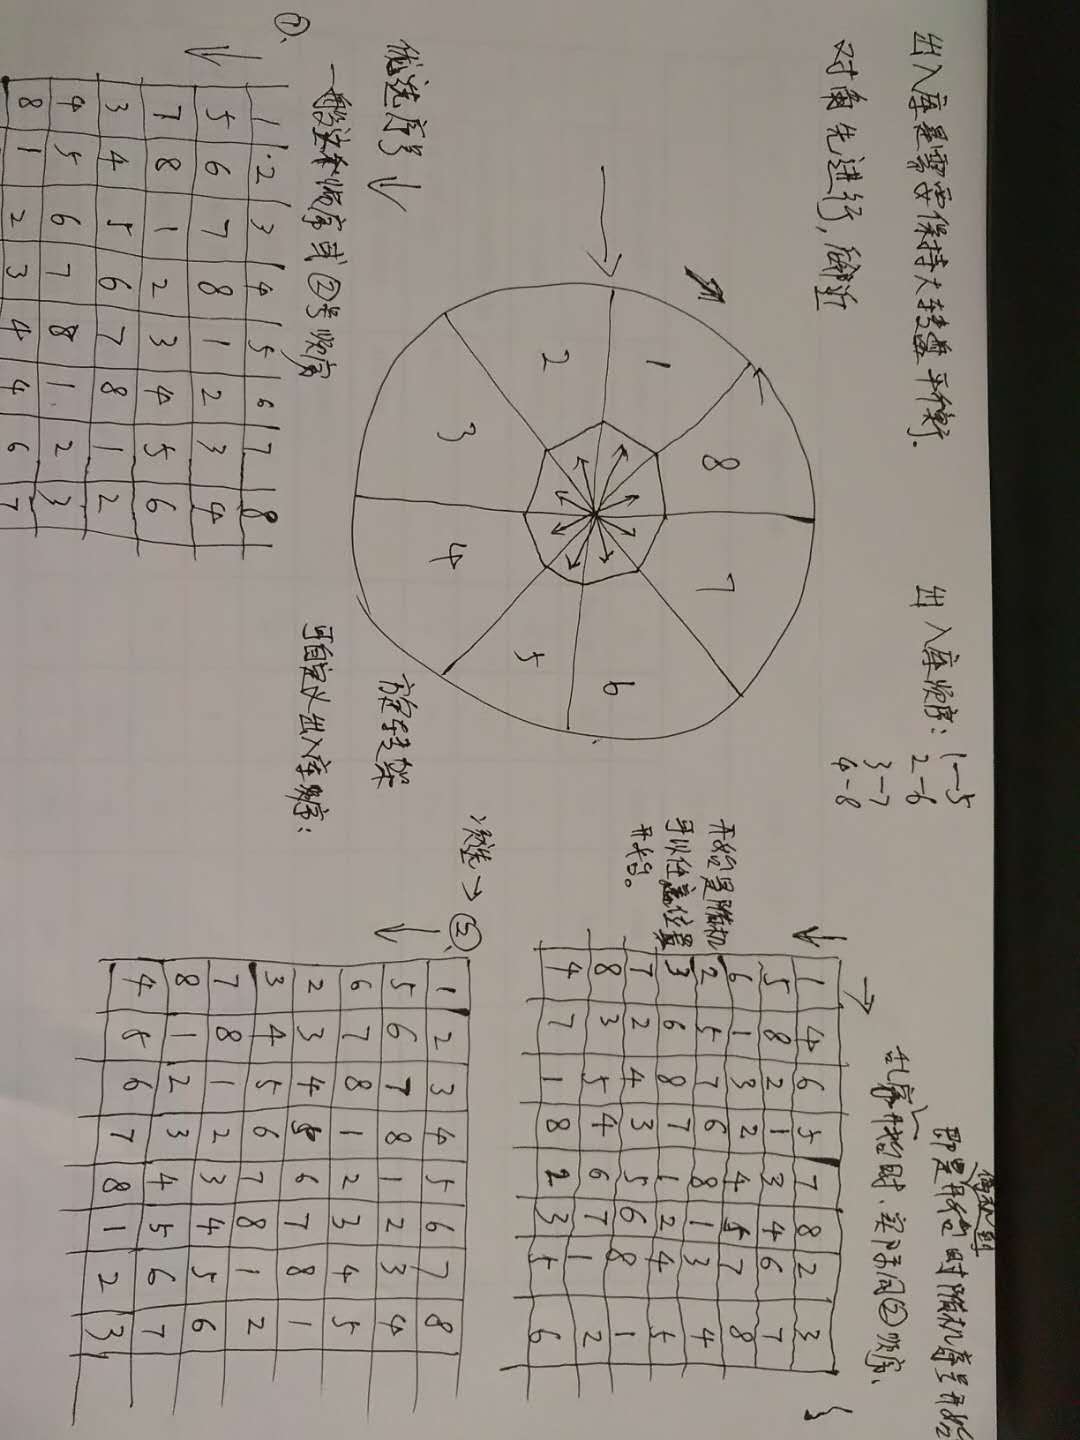 出入库是需要保持大转盘平衡.
对角先进行,
出入库顺序: 1—5
2—6
3—7
4—8
1
2
3
4
5
6
7
8
旋转支架
优选序号↓
一般没有顺序或②号顺序
可自定义出入库顺序:
①、
1 2 3 4 5 6 7 8
5 6 7 8 1 2 3 4
7 8 1 2 3 4 5 6
3 4 5 6 7 8 1 2
4 5 6 7 8 1 2 3
8 1 2 3 4 4 6 7
即是开始时随机序号开始
乱序开始时、实际同②顺序、
开始是随机
可以任意位置
开始。
1 4 6 5 7 8 2 3
5 8 2 1 3 4 6 7
6 1 3 2 4 5 7 8
2 5 7 6 8 1 3 4
3 6 8 7 1 2 4 5
7 2 4 3 5 6 8 1
8 3 5 4 6 7 1 2
4 7 1 8 2 3 5 6
次选→②、
1 2 3 4 5 6 7 8
5 6 7 8 1 2 3 4
6 7 8 1 2 3 4 5
2 3 4 5 6 7 8 1
3 4 5 6 7 8 1 2
7 8 1 2 3 4 5 6
8 1 2 3 4 5 6 7
4 5 6 7 8 1 2 3